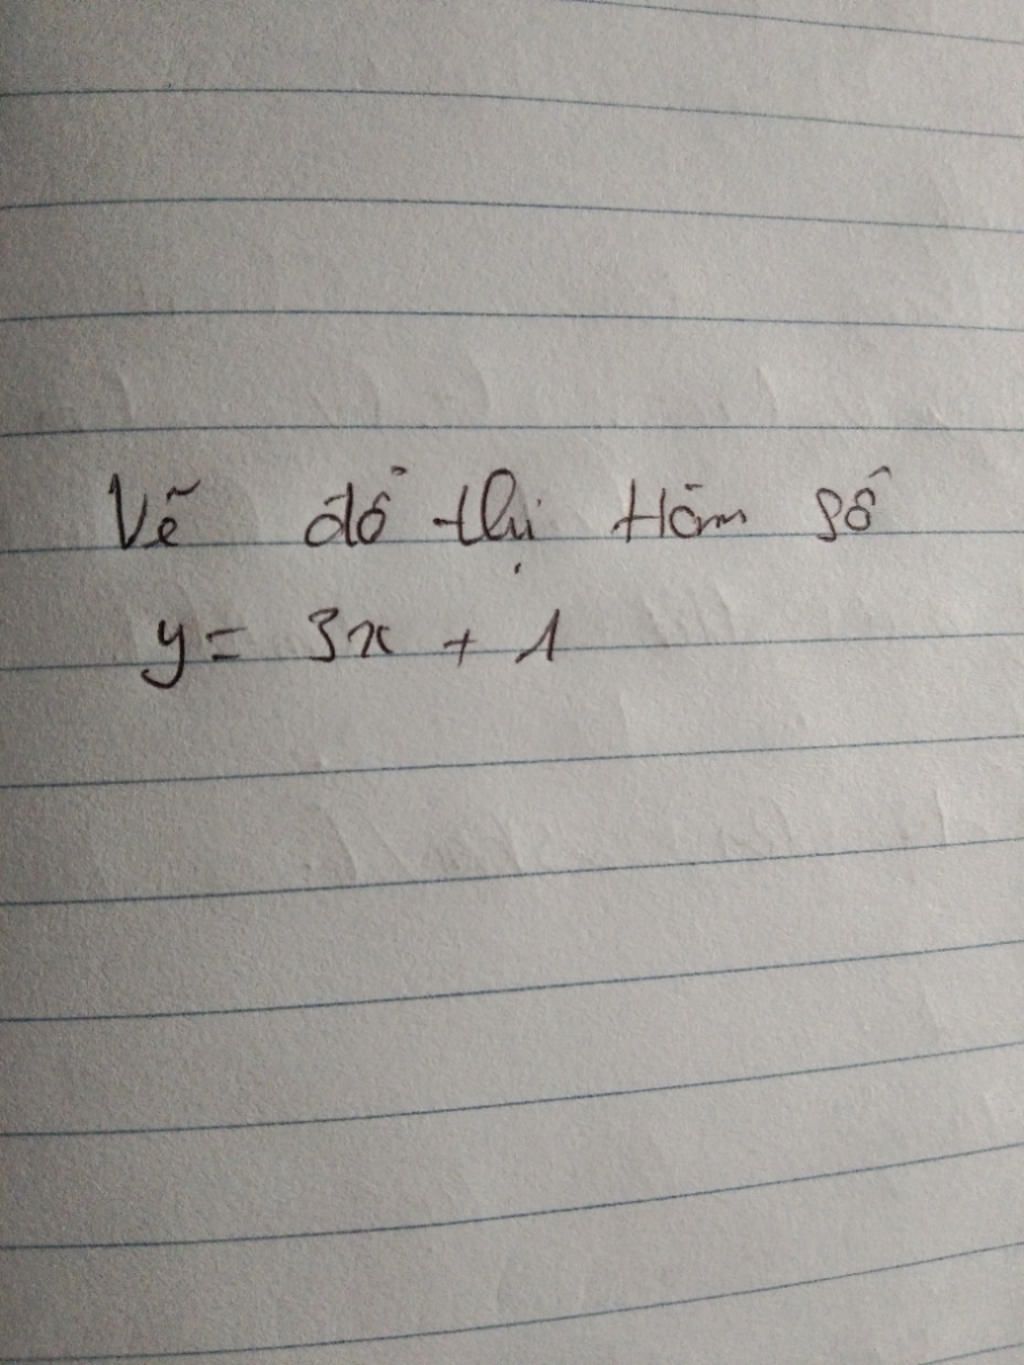 Vẽ đồ thị Hàm số
y = 3x + 1